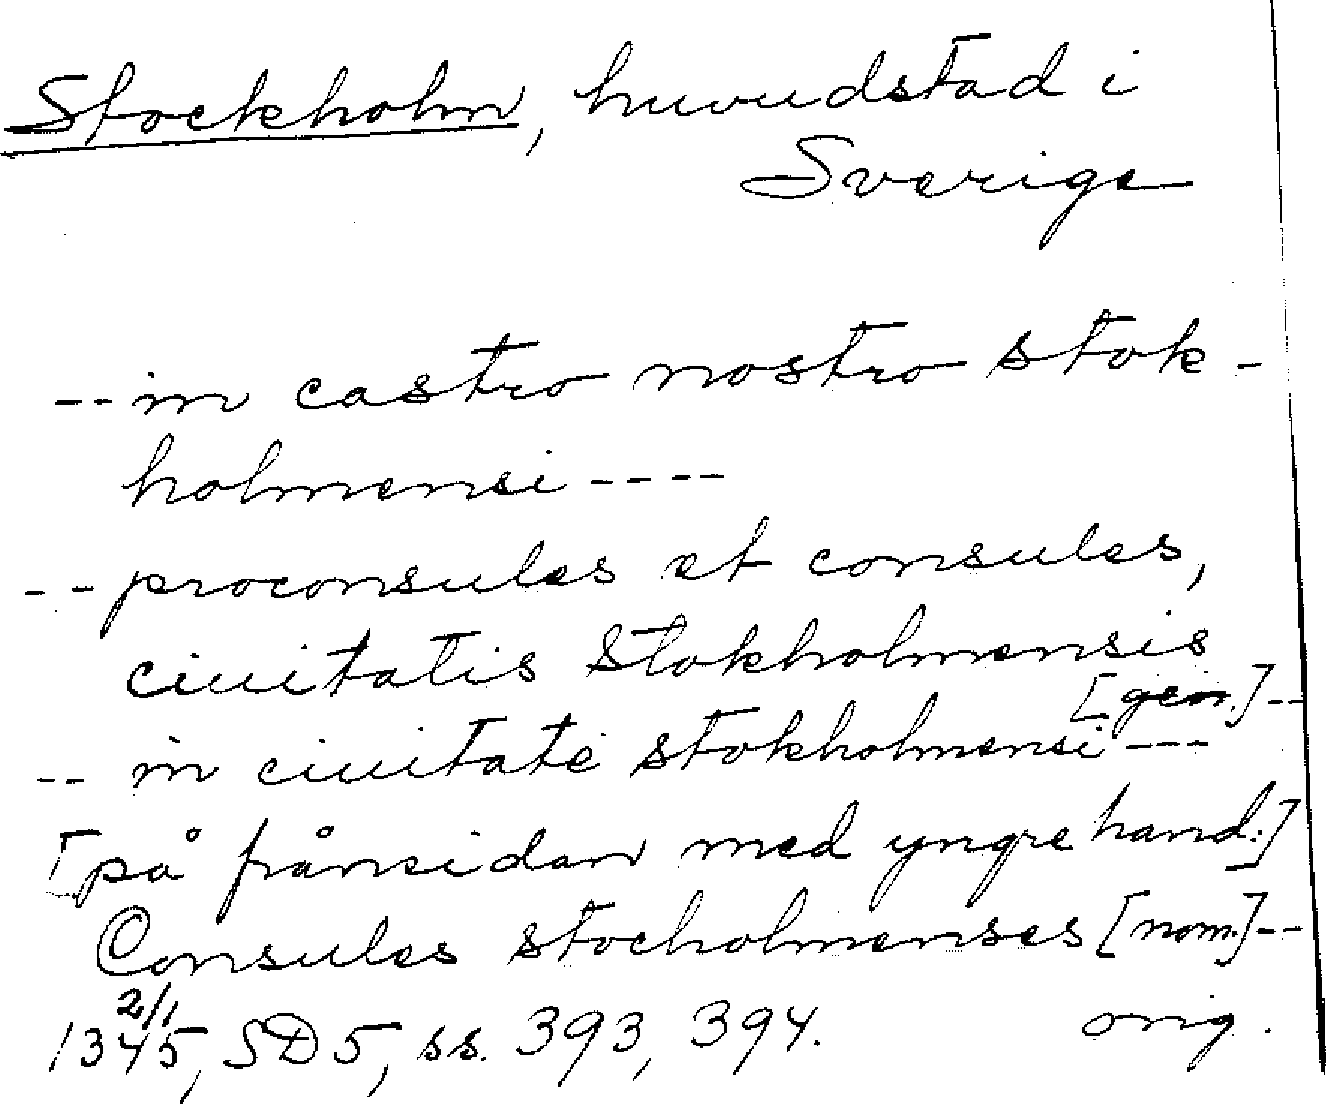 Stockholm, huvudstad i
Sverige
-- in castro nostro stok-
holmensi ----
-- proconsules et consules,
ciuitatis Stokholmensis
[gen.] --
-- in ciuitate stokholmensi ---
[på frånsidan med yngre hand:]
Consules stocholmenses [nom.] --
2/1
1345, SD 5, ss. 393, 394. orig.